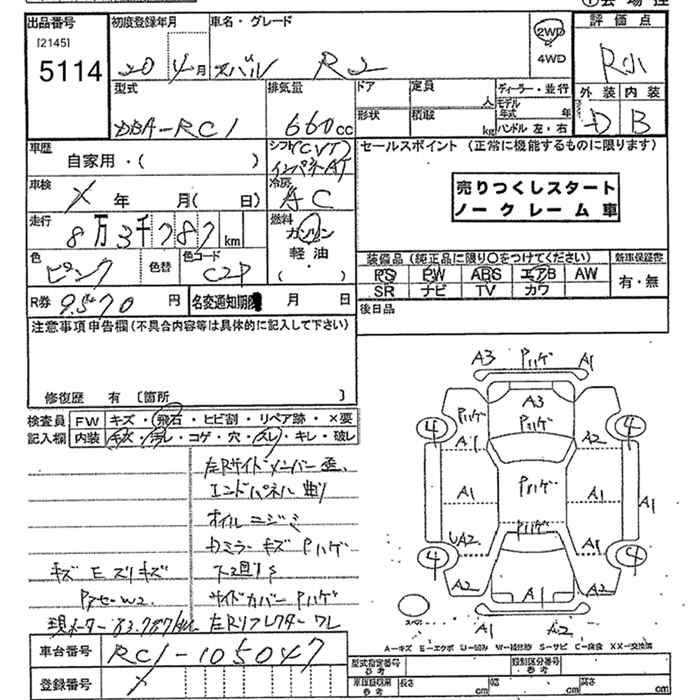 出品番号 初度登録年月 車名・グレード 2WD 評価点
[2145] 4WD
5114 20年4月 スバル R2 R小
型式 排気量 ドア 定員 ディーラー・並行 外装 内装
DBA-RC1 660cc 人 モデル年式 年 D B
形状 積載 kg ハンドル 左・右
車歴 シフト CVT セールスポイント (正常に機能するものに限ります)
自家用・( ) インパネAT
車検 年 月( 日) 冷房 AC 売りつくしスタート
ノークレーム車
走行 8万3千787km 燃料 ガソリン
軽油
・( )
色 ピンク 色替 色コード C2P
装備品 (純正品に限り○をつけてください) 新車保証書
PS PW ABS エアB AW 有・無
SR ナビ TV カワ
R券 円 名変通知期限 月 日 後日品
注意事項申告欄(不具合内容等は具体的に記入して下さい)
修復歴 有 [箇所 ]
検査員 FW キズ・飛石・ヒビ割・リペア跡・×要
記入欄 内装 キズ・汚レ・コゲ・穴・スレ・キレ・破レ
左Rサイドメンバー歪
エンドパネル曲リ
オイルニジミ
カミラーキズ Pハゲ
キズ E スリキズ 下廻りS
PアセW2 サイドカバーPハゲ
現メーター 83.787km 左Rリフレクターワレ
車台番号 RC1-105047
登録番号
A3 Pハゲ A1
A3
Pハゲ Pハゲ
4 4
A1 A2
A1 Pハゲ A1 A1
Pハゲ
UA2 A1
4 4
A2 A1 A2
スペア
A1 A2
A-キズ E-エクボ U-凹み W-補修跡 S-サビ C-腐食 XX-交換済
型式指定番号 参考 類別区分番号 参考
車体寸法 参考 長さ cm 幅 cm 高さ cm